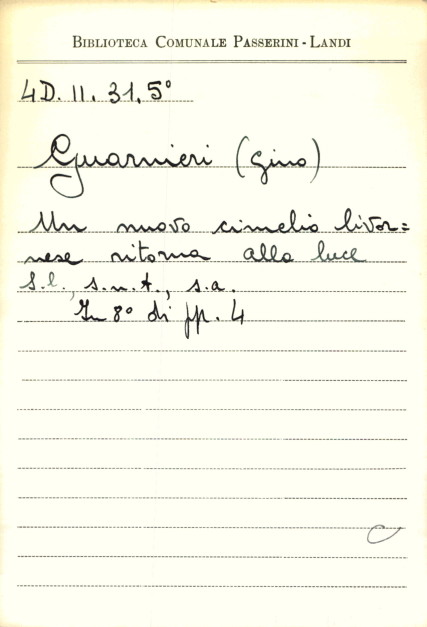 BIBLIOTECA COMUNALE PASSERINI - LANDI
4D. II. 31, 5°
Guarnieri (Gino)
Un nuovo cimelio livor=
nese ritorna alla luce
S.l., s.n.t., s.a.
In 8° di pp. 4